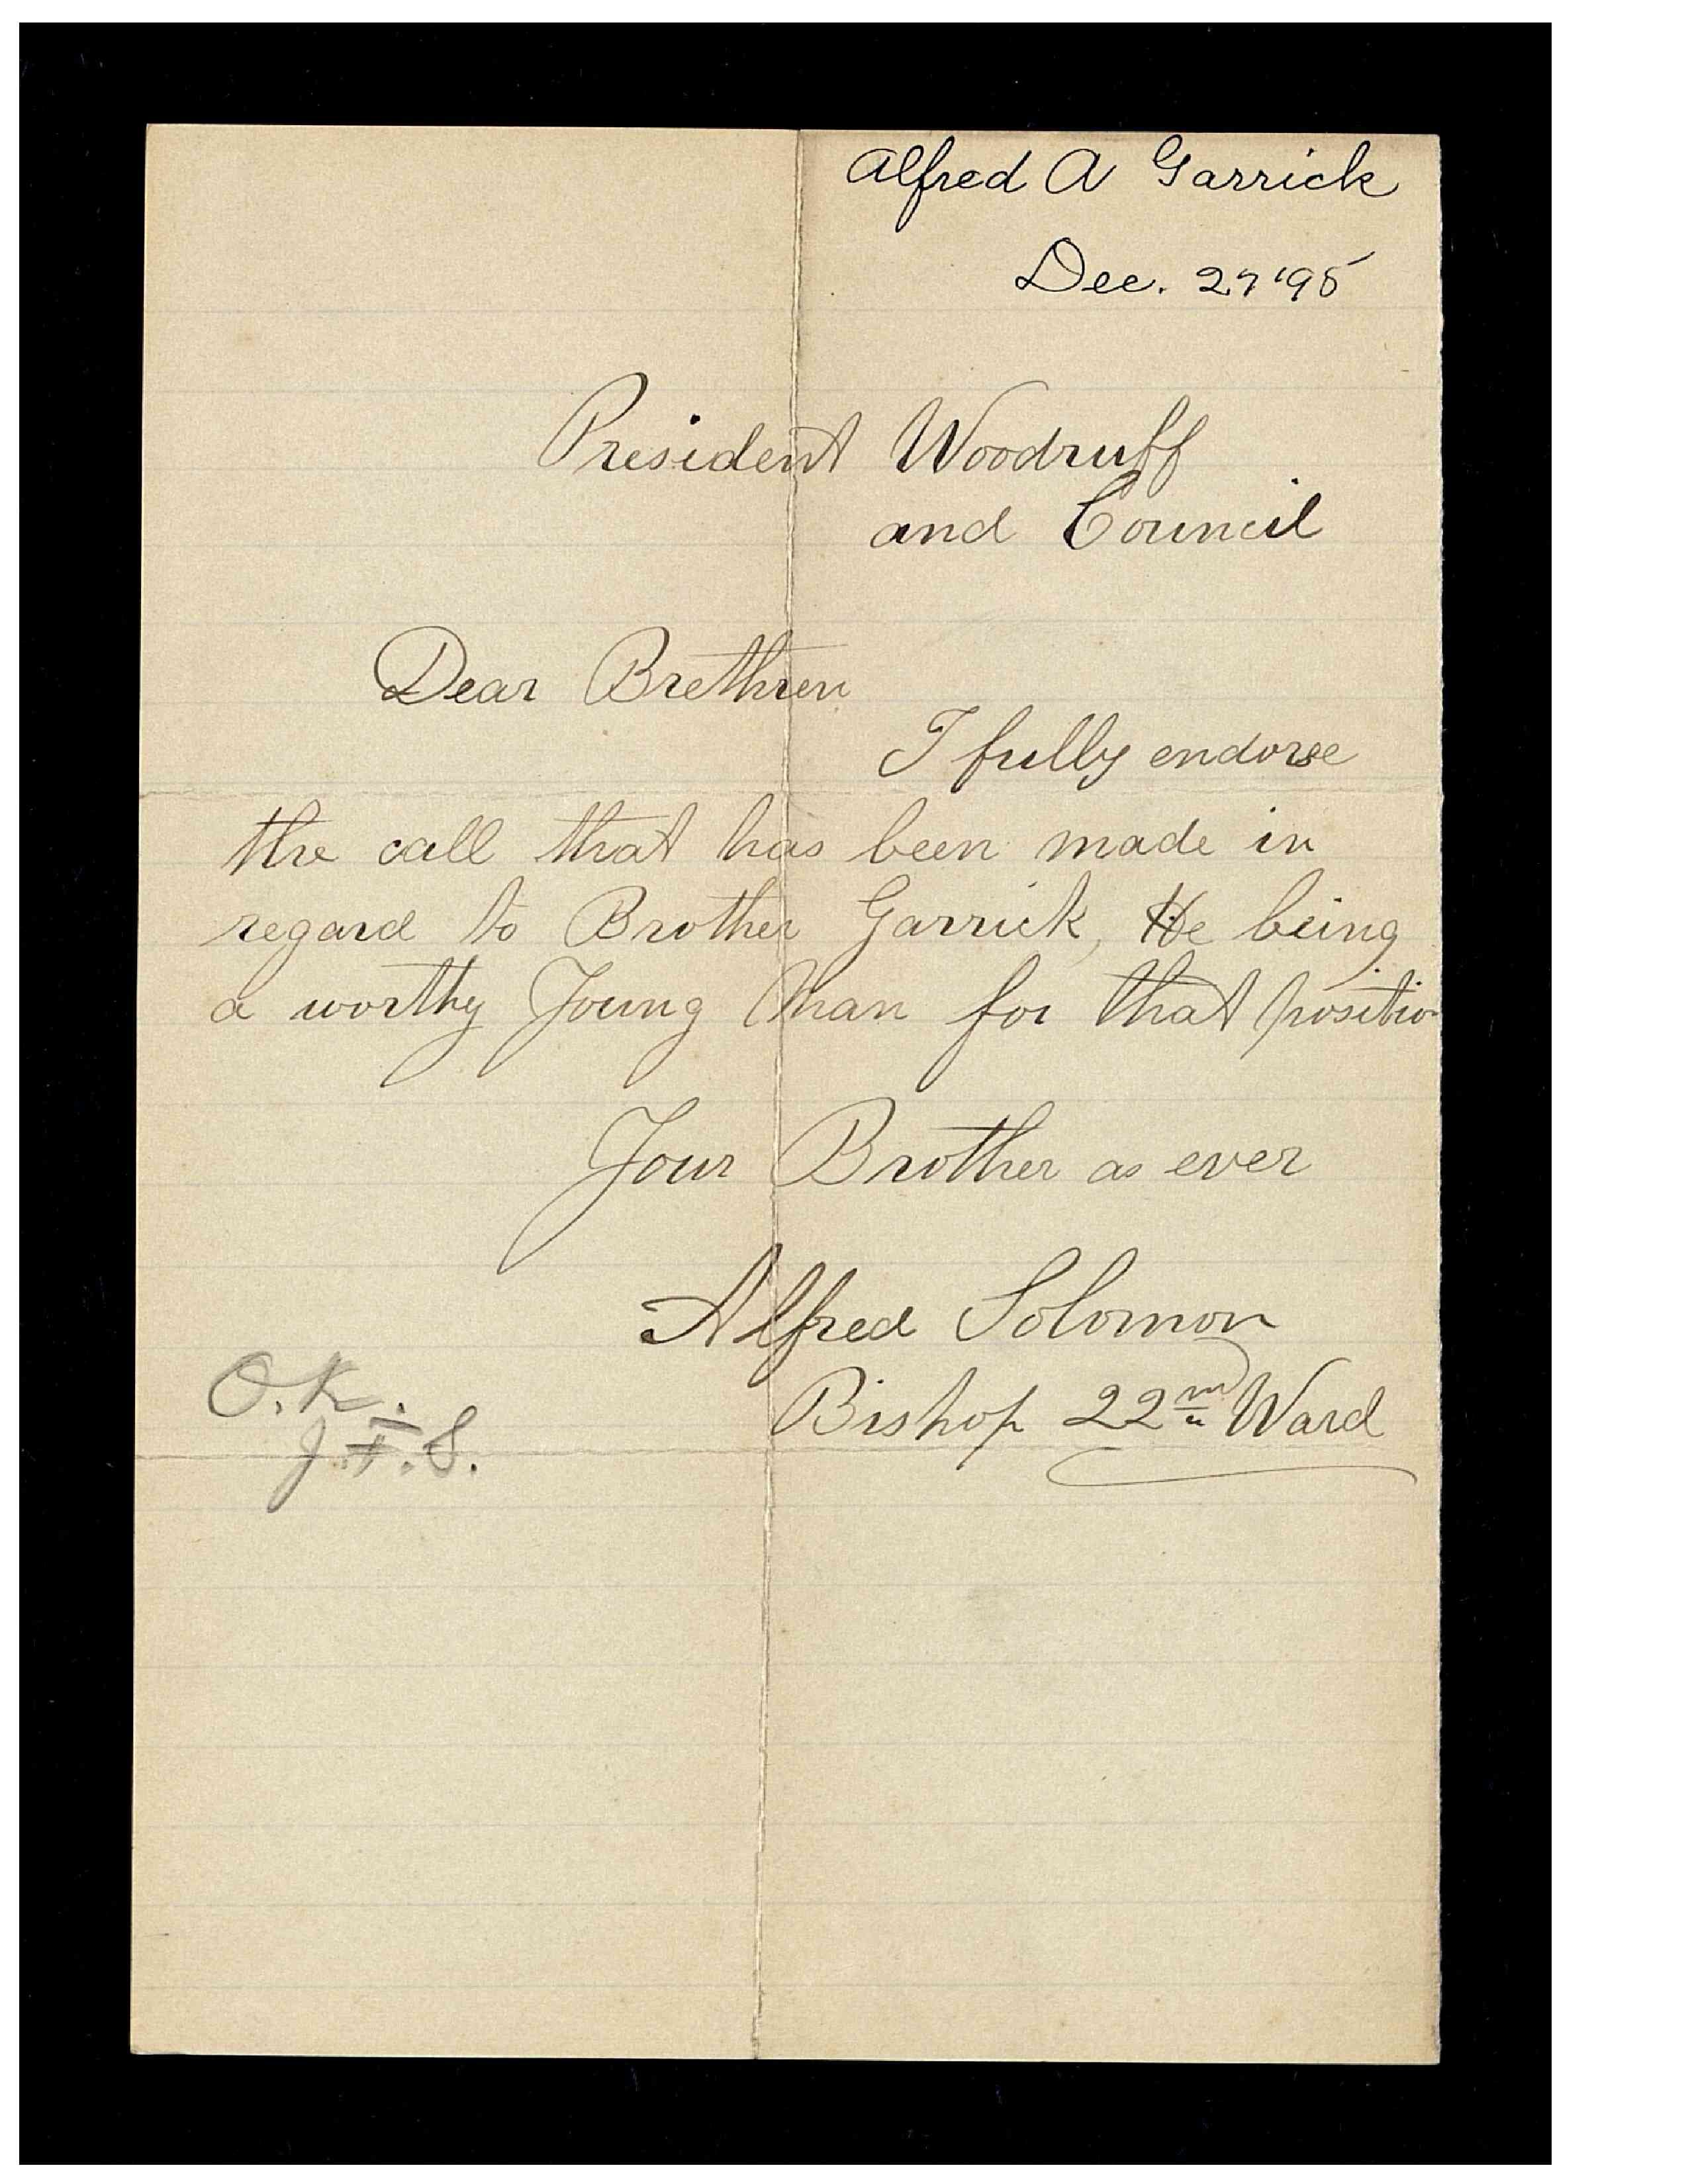 Alfred A Garrick
Dec. 27 '95
President Woodruff
and Council
Dear Brethren
I fully endorse
the call that has been made in
regard to Brother Garrick, He being
a worthy Young Man for that positio
Your Brother as ever
Alfred Solomon
Bishop 22nd Ward
O.K.
J.F.S.